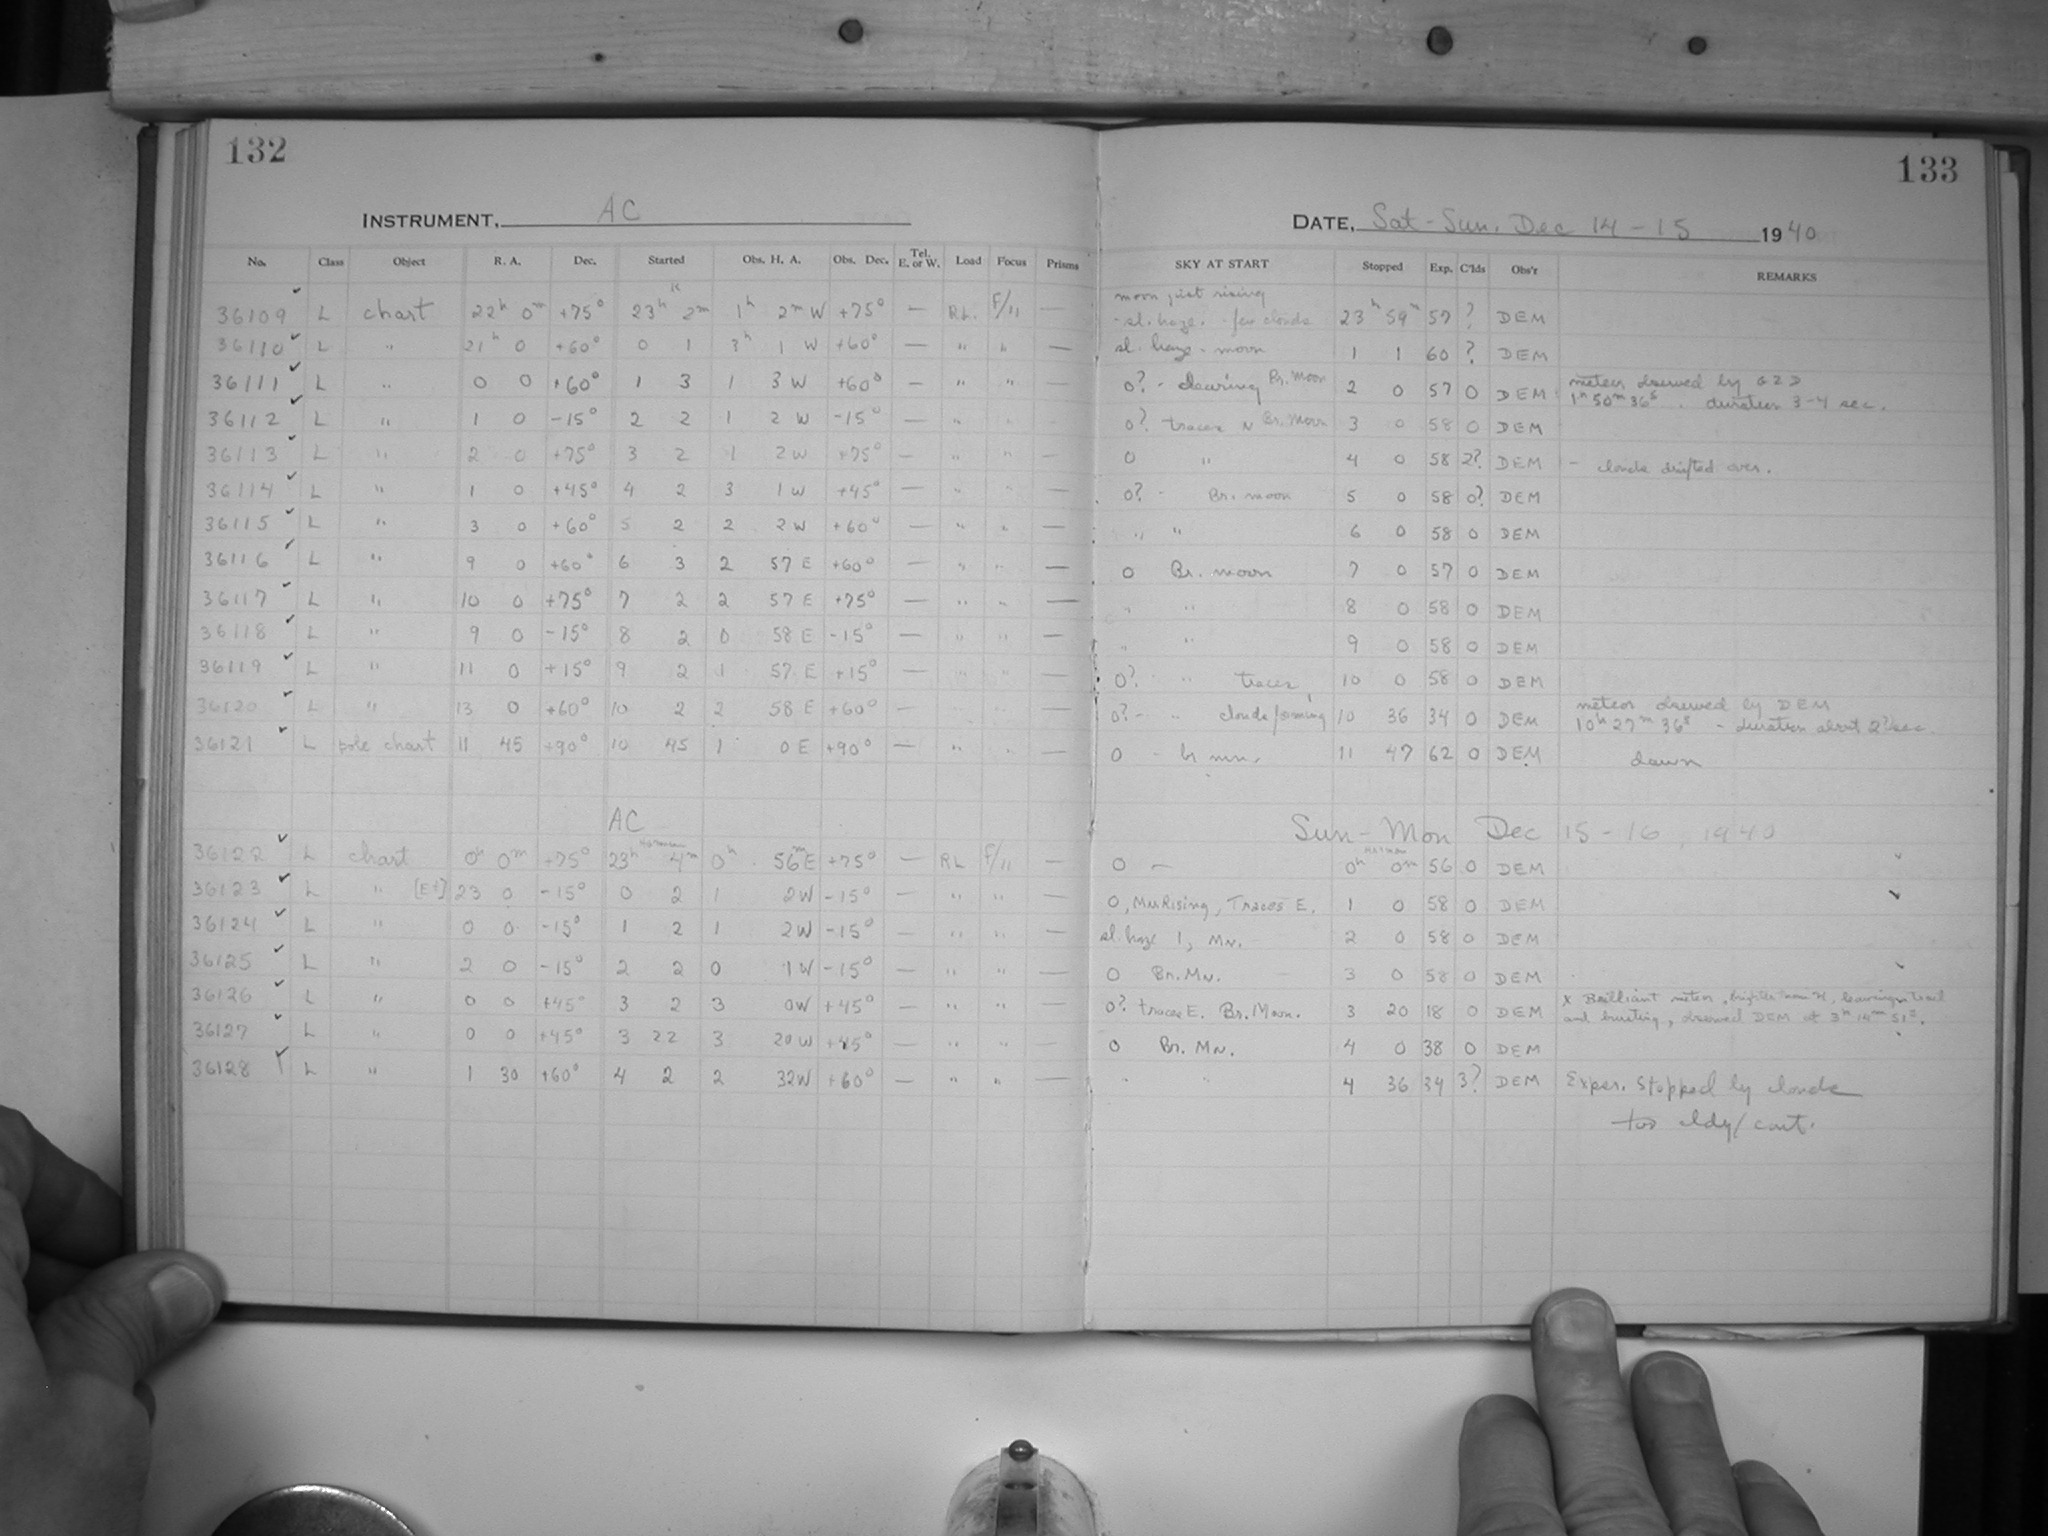 132
133
INSTRUMENT, AC
DATE, Sat - Sun. Dec 14 - 15 1940
No. Class Object R. A. Dec. Started Obs. H. A. Obs. Dec. Tel. E. or W. Load Focus Prisms SKY AT START Stopped Exp. C'lds Obs'r REMARKS
moon just rising
36109 L chart 22h 0m +75° 23h 2m 1h 2m W +75° — RL. F/11 — - sl. haze. - few clouds 23h 59m 57 ? DEM
36110 L " 21h 0 +60° 0 1 3h 1 W +60° — " " — sl. haze - moon 1 1 60 ? DEM
36111 L " 0 0 +60° 1 3 1 3 W +60° — " " — 0? - clearing Br. Moon 2 0 57 0 DEM meteor observed by
1h 50m 36s . duration 3-4 sec.
36112 L " 1 0 -15° 2 2 1 2 W -15° — " " — 0? traces N Br. Moon 3 0 58 0 DEM
36113 L " 2 0 +75° 3 2 1 2 W +75° — " " — 0 " 4 0 58 2? DEM - clouds drifted over.
36114 L " 1 0 +45° 4 2 3 1 W +45° — " " — 0? - Br. moon 5 0 58 0? DEM
36115 L " 3 0 +60° 5 2 2 2 W +60° — " " — " " 6 0 58 0 DEM
36116 L " 9 0 +60° 6 3 2 57 E +60° — " " — 0 Br. moon 7 0 57 0 DEM
36117 L " 10 0 +75° 7 2 2 57 E +75° — " " — " " 8 0 58 0 DEM
36118 L " 9 0 -15° 8 2 0 58 E -15° — " " — " " 9 0 58 0 DEM
36119 L " 11 0 +15° 9 2 1 57 E +15° — " " — 0? " traces 10 0 58 0 DEM
36120 L " 13 0 +60° 10 2 2 58 E +60° — " " — 0? - " clouds forming 10 36 34 0 DEM meteor observed by DEM
10h 27m 36s - duration about 2? sec.
36121 L pole chart 11 45 +90° 10 45 1 0 E +90° — " " — 0 - br mn. 11 47 62 0 DEM dawn
AC
Sun - Mon Dec 15 - 16, 1940
36122 L chart 0h 0m +75° 23h 4m 0h 56m E +75° — RL F/11 — 0 — 0h 0m 56 0 DEM
36123 L " [E+] 23 0 -15° 0 2 1 2 W -15° — " " — 0, Mn Rising, Traces E. 1 0 58 0 DEM
36124 L " 0 0 -15° 1 2 1 2 W -15° — " " — sl. haze 1, Mn. 2 0 58 0 DEM
36125 L " 2 0 -15° 2 2 0 1 W -15° — " " — 0 Br. Mn. 3 0 58 0 DEM
36126 L " 0 0 +45° 3 2 3 0 W +45° — " " — 0? traces E. Br. Moon. 3 20 18 0 DEM x Brilliant meteor, brighter than ♃, leaving trail
and bursting, observed DEM at 3h 14m 51s.
36127 L " 0 0 +45° 3 22 3 20 W +45° — " " — 0 Br. Mn. 4 0 38 0 DEM
36128 L " 1 30 +60° 4 2 2 32 W +60° — " " — " " 4 36 34 3? DEM Exper. Stopped by clouds
too cldy / cont.